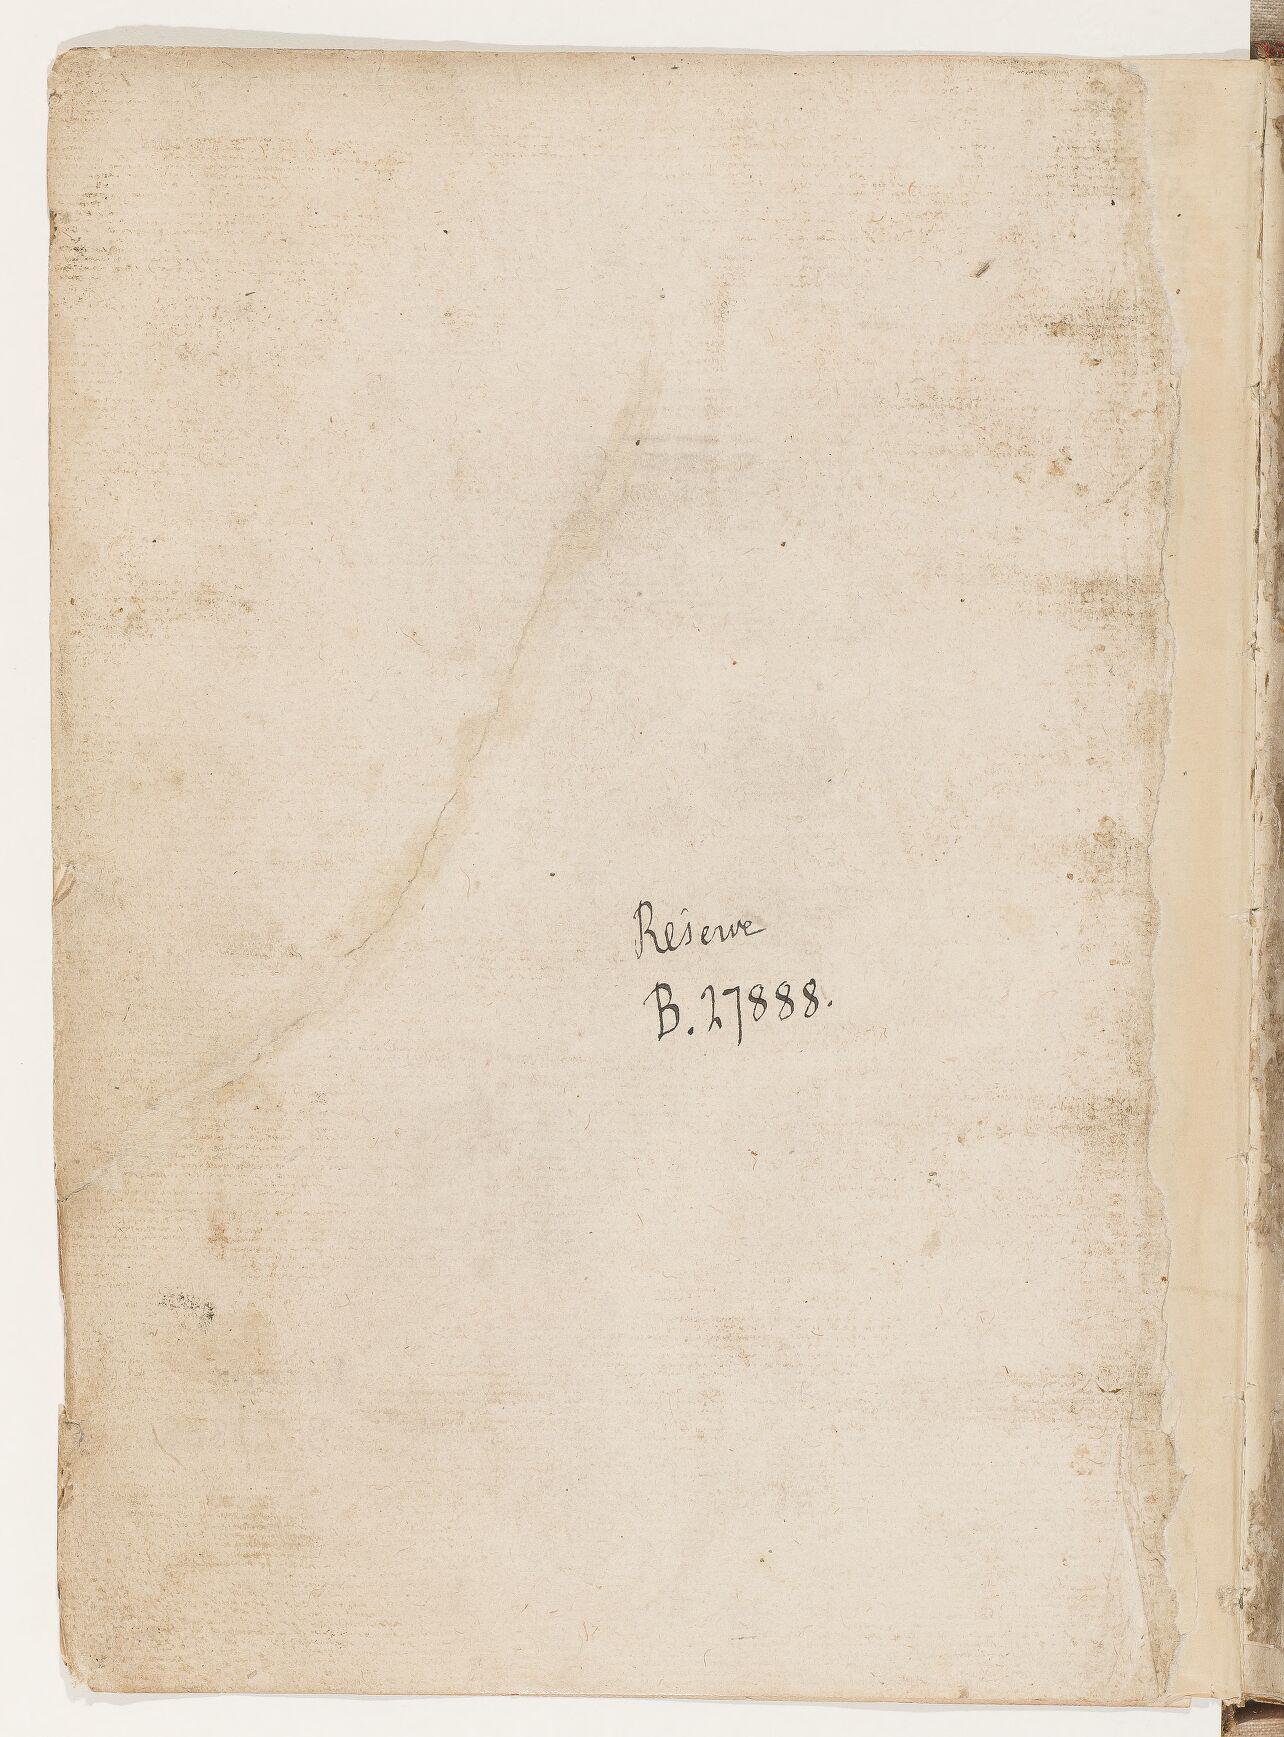 Réserve
B. 27888.